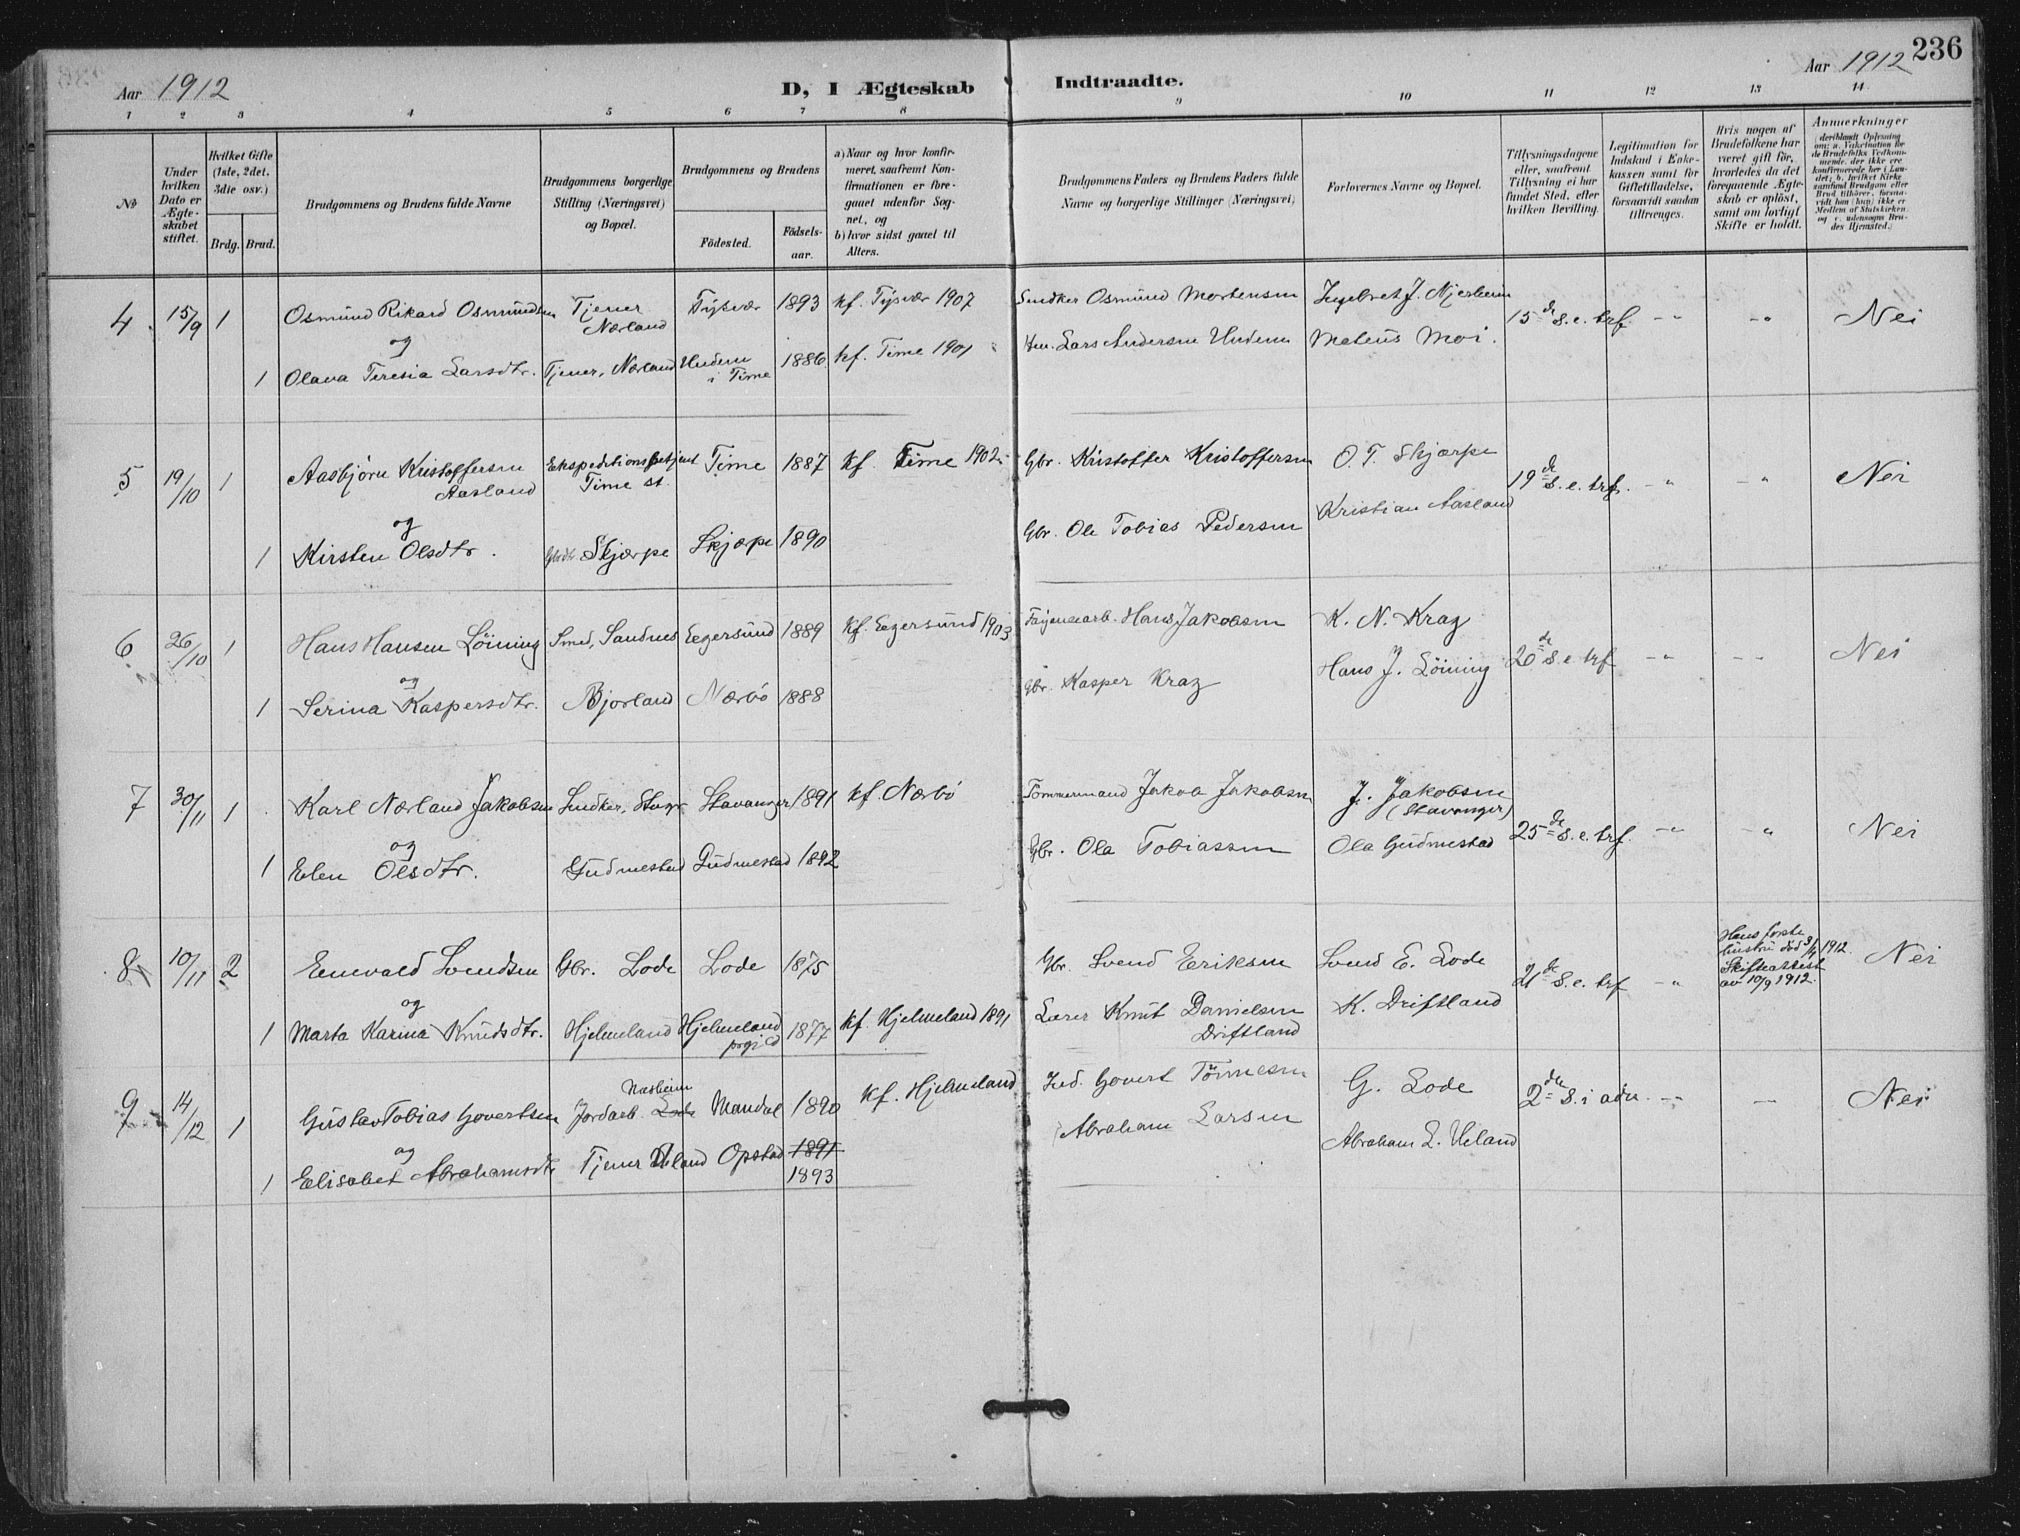 236
Aar 1912
D, I Ægteskab Indtraadte.
Aar 1912
1 2 3 4 5 6 7 8 9 10 11 12 13 14
No
Under hvilken Dato er Ægteskabet stiftet.
Hvilket Gifte (1ste, 2det, 3die osv.)
Brdg. Brud.
Brudgommens og Brudens fulde Navne
Brudgommens borgerlige Stilling (Næringsvei) og Bopæl.
Brudgommens og Brudens
Födested.
Födsels-aar.
a) Naar og hvor konfirmeret, saafremt Konfirmationen er foregaaet udenfor Sognet, og
b) hvor sidst gaaet til Alters.
Brudgommens Faders og Brudens Faders fulde Navne og borgerlige Stillinger (Næringsvei)
Forlovernes Navne og Bopæl.
Tillysningsdagene eller, saafremt Tillysning ei har fundet Sted, efter hvilken Bevilling.
Legitimation for Indskud i Enkekassen samt for Giftetilladelse, forsaavidt saadan tiltrænges.
Hvis nogen af Brudefolkene har været gift för, hvorledes da det foregaaende Ægteskab er oplöst, samt om lovligt Skifte er holdt.
Anmerkninger
(deriblandt Oplysning om: a. Vakcination for de Brudefolks Vedkommende, der ikke ere konfirmerede her i Landet; b. hvilket Kirkesamfund Brudgom eller Brud tilhörer, forsaavidt han (hun) ikke er Medlem af Statskirken og c. udensogns Brudes Hjemsted.)
4 15/9 1 Osmund Rikard Osmundsen Tjener Nærland Tysvær 1893 kf. Tysvær 1907 Sndker Osmund Mortensen Ingebret J. Njerheim 15de s. e. trf - " - " Nei
og
1 Olava Teresia Larsdtr. Tjener, Nærland Undem i Time 1886 kf. Time 1901 Lars Andersen Undem Mateus Moi.
5 19/10 1 Aasbjörn Kristoffersen Aasland Ekspeditionsbetjent Time st. Time 1887 kf. Time 1902 Gbr. Kristoffer Kristoffersen O. T. Skjærpe 19de s. e. trf. - " - " Nei
og
1 Kirsten Olsdtr. Gbrdtr Skjærpe Skjærpe 1890 Gbr. Ole Tobias Pedersen Kristian Aasland
6 26/10 1 Hans Hansen Löining Smed, Sandnes Egersund 1889 kf. Egersund 1903 Fajancearb. Hans Jakobsen K. N. Krag 20de s. e. trf - " - " Nei
og
1 Serina Kaspersdtr. Bjorland Nærbö 1888 Gbr. Kasper Krag Hans J. Löining
7 30/11 1 Karl Nærland Jakobsen Sndker, Stvgr Stavanger 1891 kf. Nærbö Tömmermand Jakob Jakobsen J. Jakobsen (Stavanger) 25de s. e. trf. - " - " Nei
og
1 Elen Olsdtr. Gudmestad Gudmestad 1892 Gbr. Ola Tobiassen Ola Gudmestad
8 10/11 2 Enevald Svendsen Gbr. Lode Lode 1875 Gbr. Svend Eriksen Svend E. Lode 21de s. e. trf - " Hans förste hustru död 3/4 1912. Skifteattest av 10/9 1912. Nei
og
1 Marta Karina Knudsdtr. Hjelmeland Hjelmeland prgjld 1877 kf. Hjelmeland 1891 Lærer Knut Danielsen Driftland K. Driftland
9 14/12 1 Gustav Tobias Govertsen Jordarb. Lode Næsheim Mandal 1890 kf. Hjelmeland Ind. Govert Tönnesen G. Lode 2den s. i adv. - " - Nei
og
1 Elisabet Abrahamsdtr Tjener Ueland Opstad 1891 1893 Abraham Larsen Abraham L. Ueland